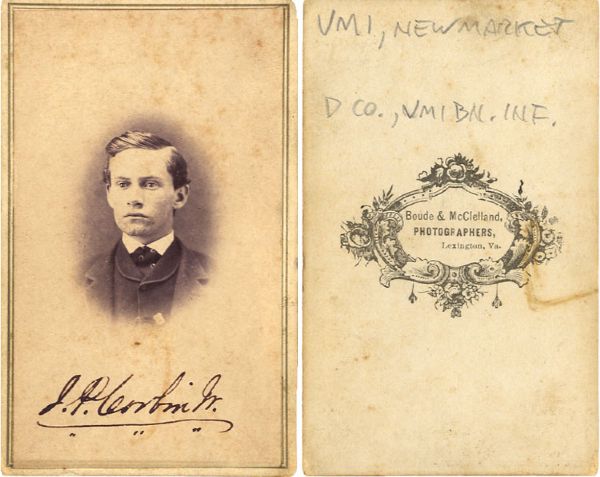 J. P. Corbin Jr.
VMI, NEW MARKET
D CO., VMI BN. INF.
Boude & McClelland,
PHOTOGRAPHERS,
Lexington, Va.